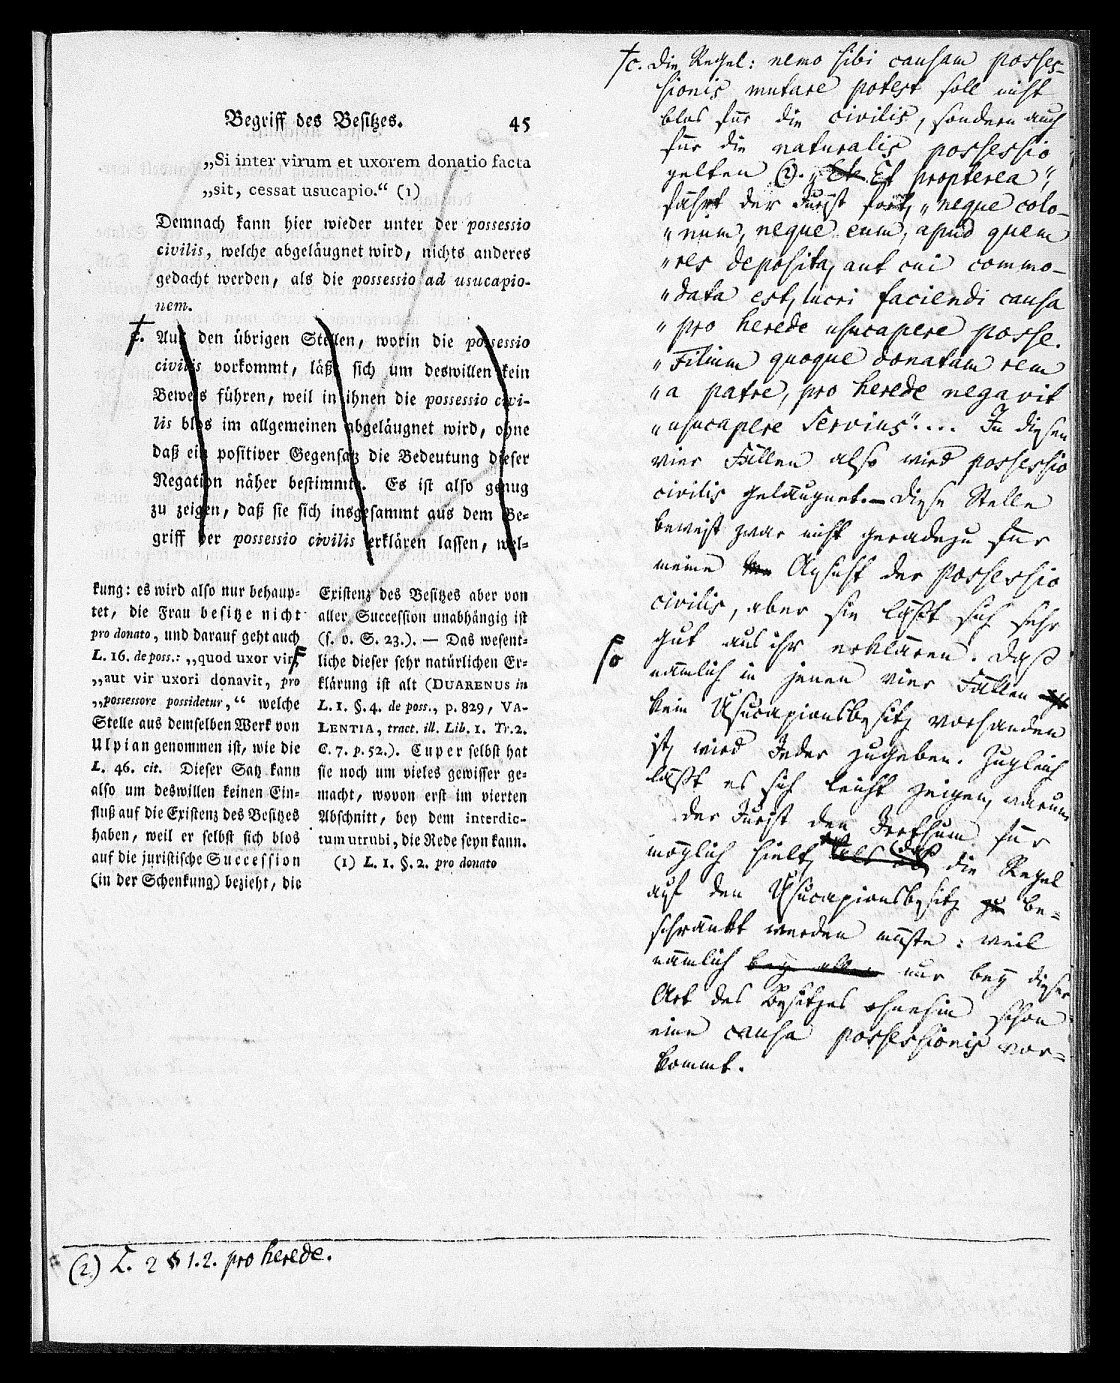 Begriff des Besitzes. 45
„Si inter virum et uxorem donatio facta
„sit, cessat usucapio.“ (1)
Demnach kann hier wieder unter der possessio
civilis, welche abgeläugnet wird, nichts anderes
gedacht werden, als die possessio ad usucapio-
nem.
c. Aus den übrigen Stellen, worin die possessio
civilis vorkommt, läßt sich um deswillen kein
Beweis führen, weil in ihnen die possessio civi-
lis blos im allgemeinen abgeläugnet wird, ohne
daß ein positiver Gegensatz die Bedeutung dieser
Negation näher bestimmte. Es ist also genug
zu zeigen, daß sie sich insgesammt aus dem Be-
griff der possessio civilis erklären lassen, wel-
kung: es wird also nur behaup-
tet, die Frau besitze nicht
pro donato, und darauf geht auch
L. 16. de poss.: „quod uxor viro
„aut vir uxori donavit, pro
„possessore possidetur,“ welche
Stelle aus demselben Werk von
Ulpian genommen ist, wie die
L. 46. cit. Dieser Satz kann
also um deswillen keinen Ein-
fluß auf die Existenz des Besitzes
haben, weil er selbst sich blos
auf die juristische Succession
(in der Schenkung) bezieht, die
Existenz des Besitzes aber von
aller Succession unabhängig ist
(s. o. S. 23.). — Das wesent-
liche dieser sehr natürlichen Er-
klärung ist alt (DUARENUS in
L. 1. §. 4. de poss., p. 829, VA-
LENTIA, tract. ill. Lib. 1. Tr. 2.
C. 7. p. 52.). Cuper selbst hat
sie noch um vieles gewisser ge-
macht, wovon erst im vierten
Abschnitt, bey dem interdic-
tum utrubi, die Rede seyn kann.
(1) L. 1. §. 2. pro donato
c. Die Regel: nemo sibi causam posses-
sionis mutare potest soll nicht
blos für die civilis, sondern auch
für die naturalis possessio
gelten (2). „Et propterea“,
fährt der Jurist fort, „neque colo-
„num, neque eum, apud quem
„res deposita, aut cui commo-
„data est, lucri faciendi causa
„pro herede usucapere posse.
„Filium quoque donatam rem
„a patre, pro herede negavit
„usucapere Servius“.... In diesen
vier Fällen also wird possessio
civilis geläugnet. — Diese Stelle
beweist zwar nicht geradezu für
meine Ansicht der possessio
civilis, aber sie läßt sich sehr
gut aus ihr erklären. Daß
nämlich in jenen vier Fällen
kein Usucapionsbesitz vorhanden
ist, wird Jeder zugeben. Zugleich
läßt es sich leicht zeigen, warum
der Jurist den Irrthum für
möglich hielt, daß die Regel
auf den Usucapionsbesitz be-
schränkt werden müßte: weil
nämlich nur bey dieser
Art des Besitzes ohnehin schon
eine causa possessionis vor-
kommt.
so
(2) L. 2 § 1. 2. pro herede.